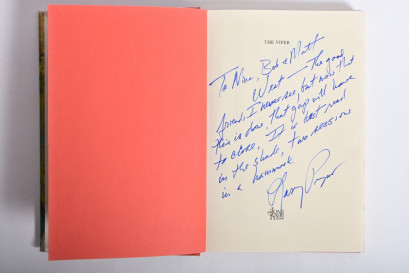 THE VIPER
To Nina, Bob & Matt
West — The good
friend, I never see, but now that
this is done, that gap will have
to close. It is best read
in the shade, two sessions
in a hammock.